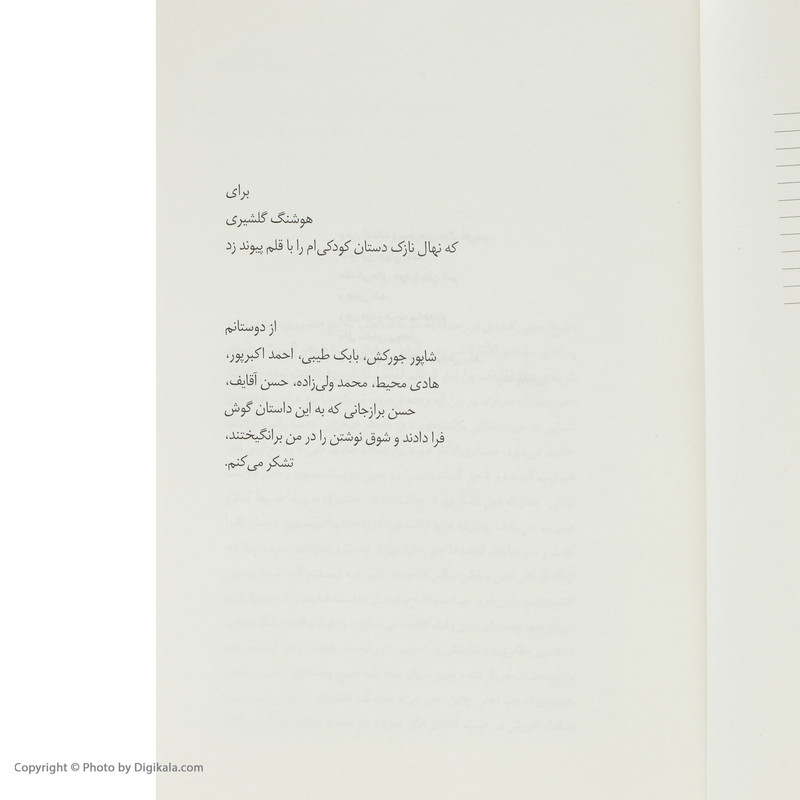 برای
هوشنگ گلشیری
که نهال نازک دستان کودکی‌ام را با قلم پیوند زد
از دوستانم
شاپور جورکش، بابک طیبی، احمد اکبرپور،
هادی محیط، محمد ولی‌زاده، حسن آقایف،
حسن برازجانی که به این داستان گوش
فرا دادند و شوق نوشتن را در من برانگیختند،
تشکر می‌کنم.
Copyright © Photo by Digikala.com